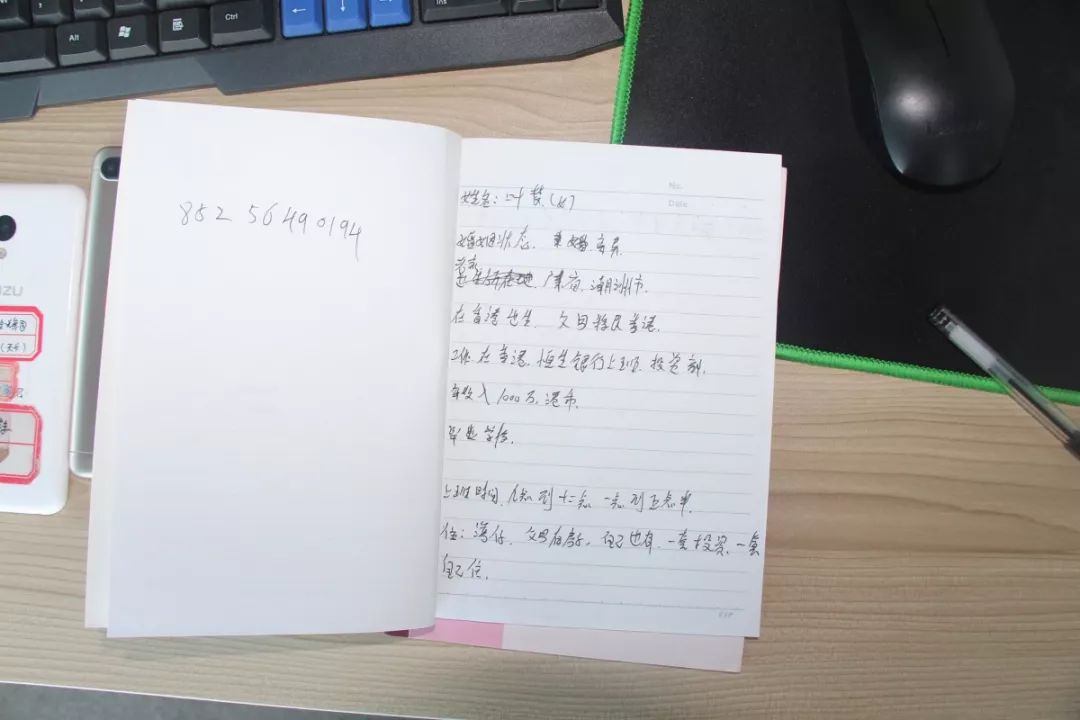 Alt
Ctrl
Ins
←
↓
→
852 56490194
No.
Date
姓名:叶 (女)
婚姻状态. 离异.
广东省.潮洲市.
在香港出生. 父母移民香港.
工作在香港.恒生银行上班.投资部.
年收入1000万.港币.
毕业学位.
上班时间.八点到十二点 一点到五点半.
住:湾仔.父母有房子.自己也有.一套投资.一套
自己住.